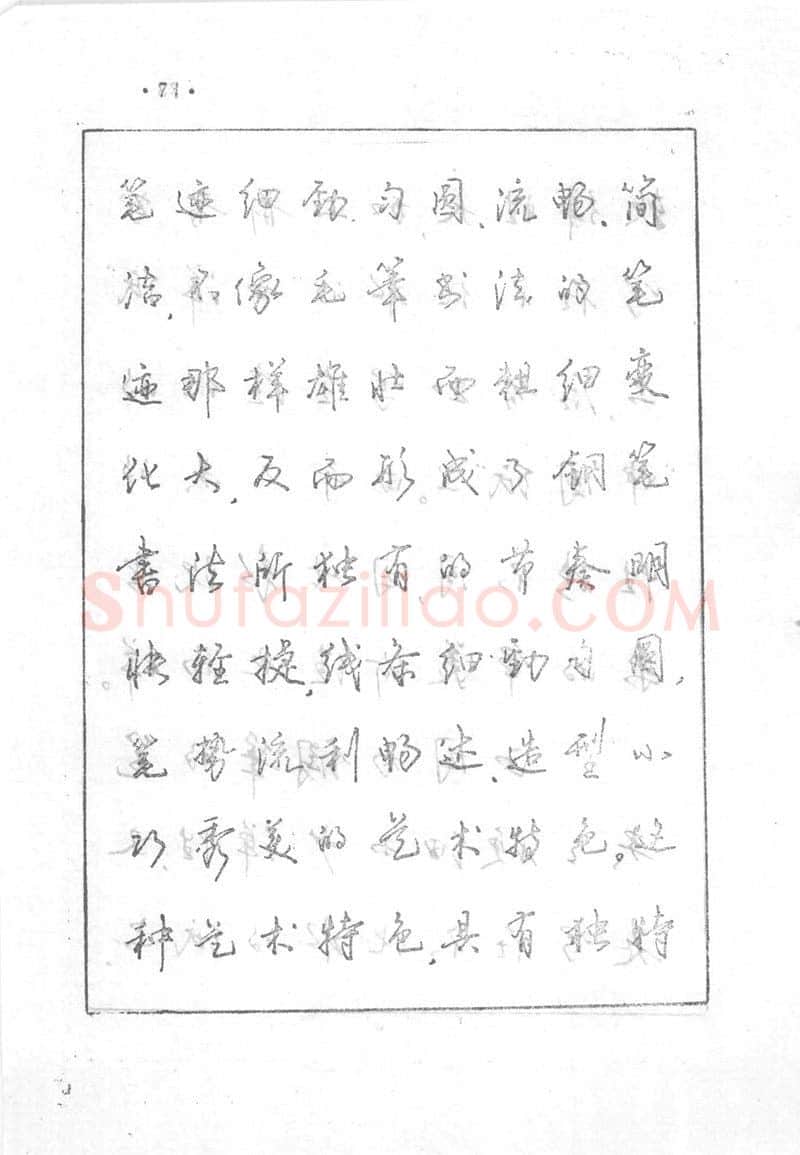 笔迹细劲、匀圆、流畅、简
洁，不像毛笔书法的笔
迹那样雄壮而粗细变
化大，反而形成了钢笔
书法所独有的节奏明
快轻捷，线条细劲匀圆，
笔势流利畅达，造型小
巧秀美的艺术特色。这
种艺术特色，具有独特
Shufaziliao.COM